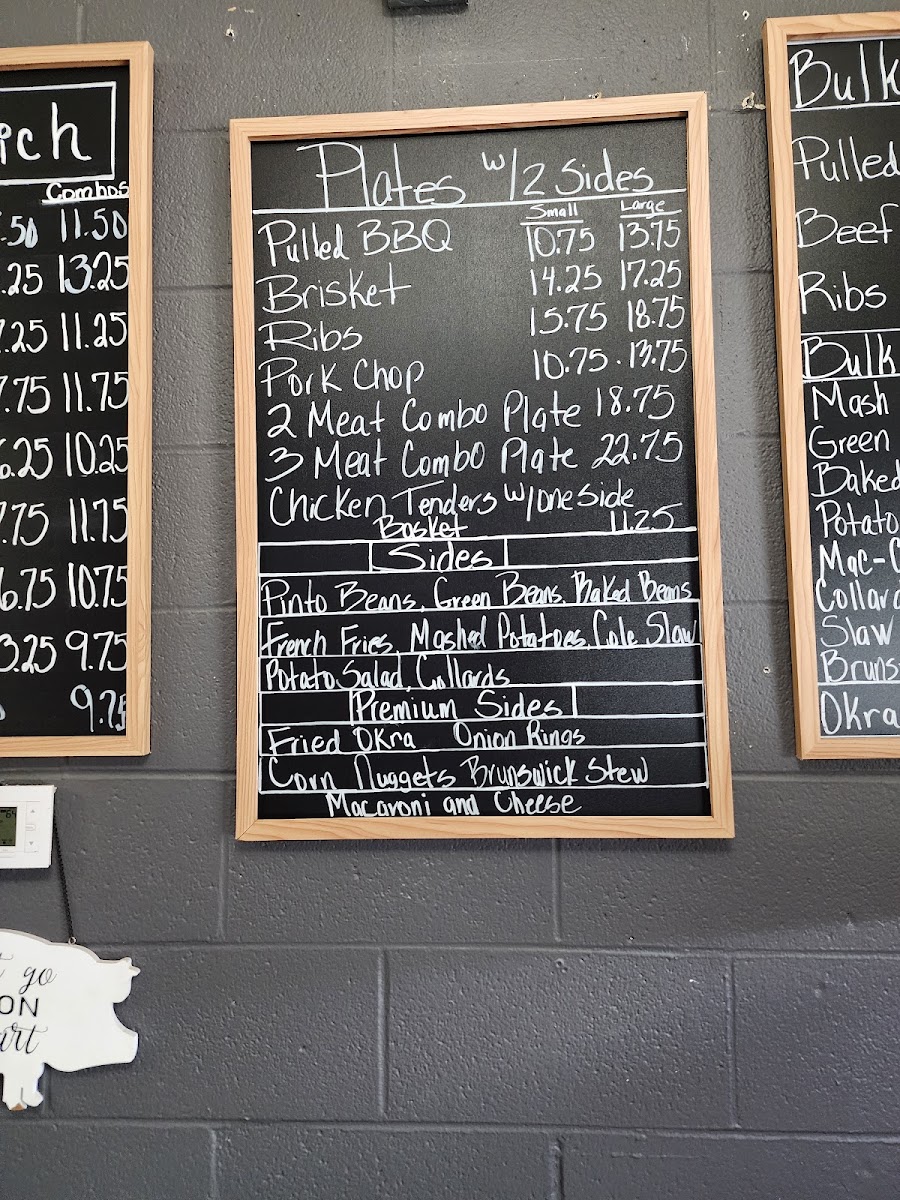 ich
Combos
.50 11.50
.25 13.25
7.25 11.25
7.75 11.75
6.25 10.25
7.75 11.75
6.75 10.75
3.25 9.75
9.75
Plates w/2 Sides
Small Large
Pulled BBQ 10.75 13.75
Brisket 14.25 17.25
Ribs 15.75 18.75
Pork Chop 10.75 . 13.75
2 Meat Combo Plate 18.75
3 Meat Combo Plate 22.75
Chicken Tenders w/one side
Basket 11.25
Sides
Pinto Beans, Green Beans, Baked Beans
French Fries, Mashed Potatoes, Cole Slaw
Potato Salad, Collards
Premium Sides
Fried Okra Onion Rings
Corn Nuggets Brunswick Stew
Macaroni and Cheese
Bulk
Pulled
Beef
Ribs
Bulk
Mash
Green
Baked
Potato
Mac-C
Collard
Slaw
Bruns
Okra
go
ON
art